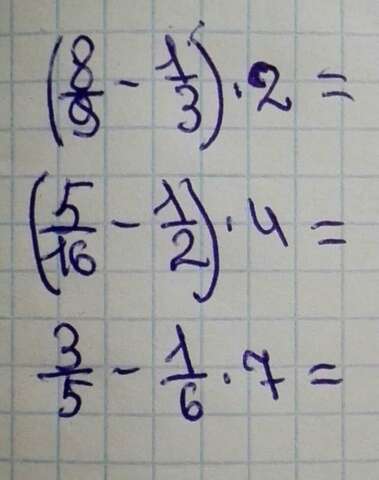 (8/9 - 1/3) · 2 =
(5/16 - 1/2) · 4 =
3/5 - 1/6 · 7 =